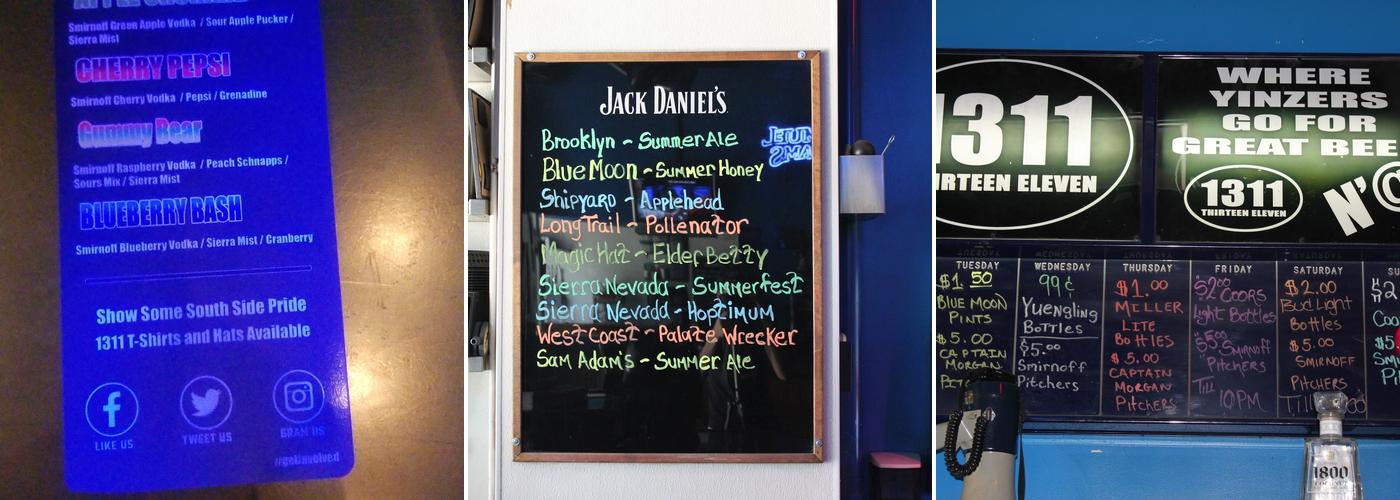 Smirnoff Green Apple Vodka / Sour Apple Pucker /
Sierra Mist
CHERRY PEPSI
Smirnoff Cherry Vodka / Pepsi / Grenadine
Gummy Bear
Smirnoff Raspberry Vodka / Peach Schnapps /
Sours Mix / Sierra Mist
BLUEBERRY BASH
Smirnoff Blueberry Vodka / Sierra Mist / Cranberry
Show Some South Side Pride
1311 T-Shirts and Hats Available
LIKE US
TWEET US
GRAM US
#getinvolved
JACK DANIEL'S
Brooklyn ~ Summer Ale
Blue Moon ~ Summer Honey
Shipyard ~ Applehead
Long Trail ~ Pollenator
Magic Hat ~ Elder Betty
Sierra Nevada ~ Summerfest
Sierra Nevada ~ Hoptimum
West Coast ~ Palate Wrecker
Sam Adam's ~ Summer Ale
1311
THIRTEEN ELEVEN
WHERE
YINZERS
GO FOR
GREAT BEE
1311
THIRTEEN ELEVEN
N'
TUESDAY
$1 50
BLUE MOON
PINTS
$5.00
CAPTAIN
MORGAN
WEDNESDAY
99¢
Yuengling
Bottles
$5.00
Smirnoff
Pitchers
THURSDAY
$1.00
MILLER
LITE
Bottles
$5.00
CAPTAIN
MORGAN
Pitchers
FRIDAY
$2.00 COORS
Light Bottles
$5.00 Smirnoff
Pitchers
Till
10PM
SATURDAY
$2.00
Bud Light
Bottles
$5.00
SMIRNOFF
PITCHERS
Till
1800